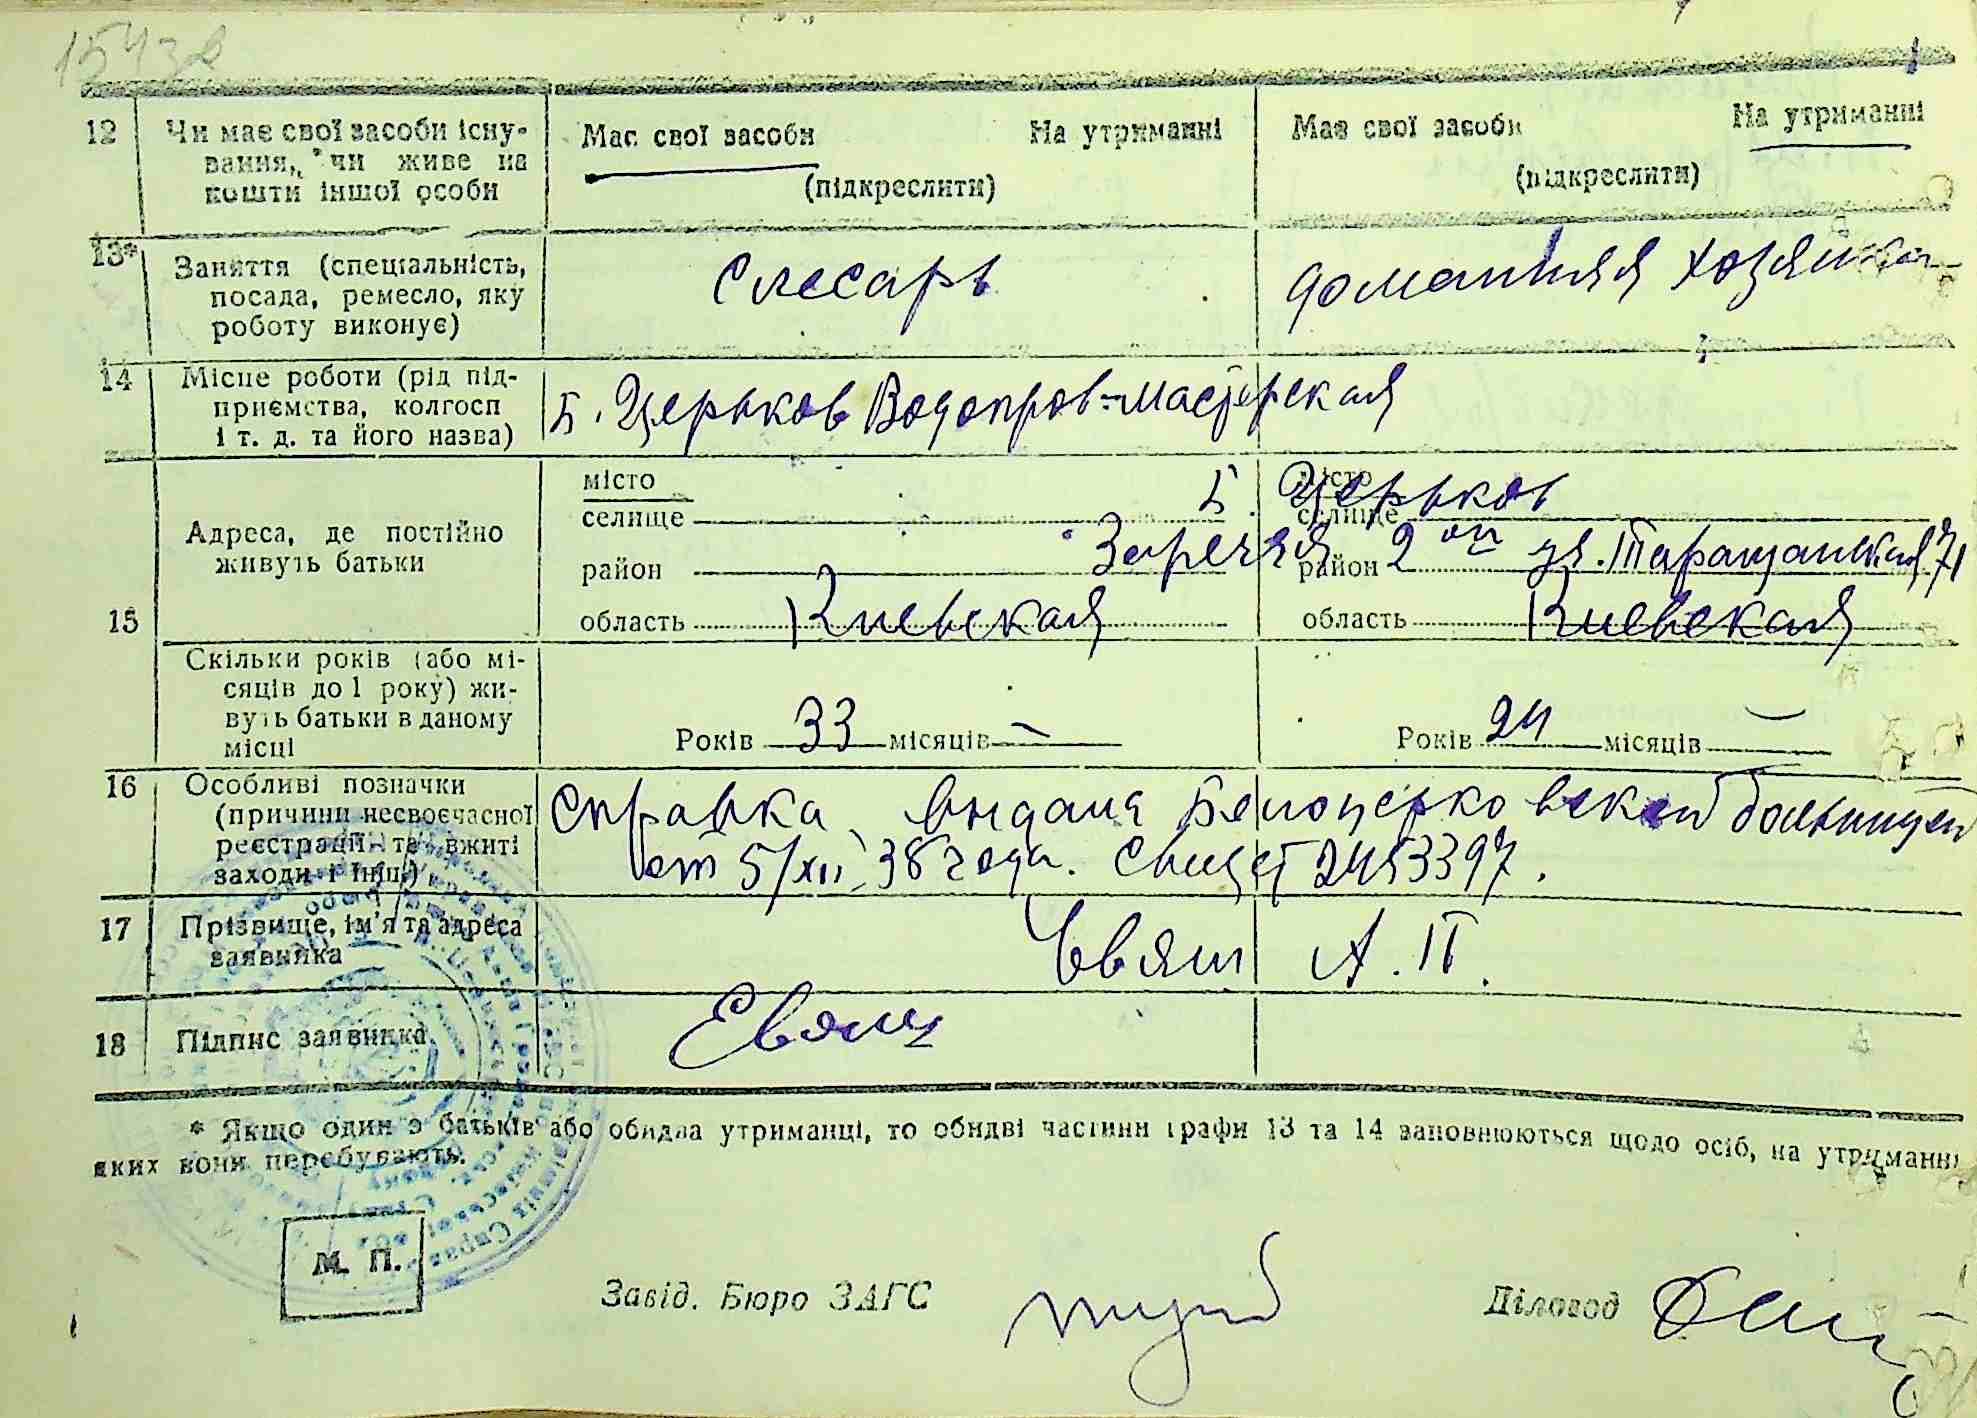 1543
12 Чи має свої засоби існу-
вання, чи живе на
кошти іншої особи
Має свої засоби На утриманні
(підкреслити)
Має свої засоби На утриманні
(підкреслити)
13* Заняття (спеціальність,
посада, ремесло, яку
роботу виконує)
Слесарь
домашняя хозяйка
14 Місце роботи (рід під-
приємства, колгосп
і т. д. та його назва)
Б. Церьков Водопров-мастерская
15 Адреса, де постійно
живуть батьки
місто
селище
район
область
Б. Церьков
Заречья 2ой ул. Таращанская 71
Киевская
місто
селище
район
область
Киевская
Скільки років (або мі-
сяців до 1 року) жи-
вуть батьки в даному
місці
Років 33 місяців —
Років 24 місяців —
16 Особливі позначки
(причини несвоєчасної
реєстрації та вжиті
заходи і інш.)
Справка выдана Белоцерковской больницей
от 5/XII 38 года. 2453397.
17 Прізвище, ім'я та адреса
заявника
Евяш А. П.
18 Підпис заявника
Евяш
* Якщо один з батьків або обидва утриманці, то обидві частини графи 13 та 14 заповнюються щодо осіб, на утриманні
яких вони перебувають.
М. П.
Завід. Бюро ЗАГС
Діловод